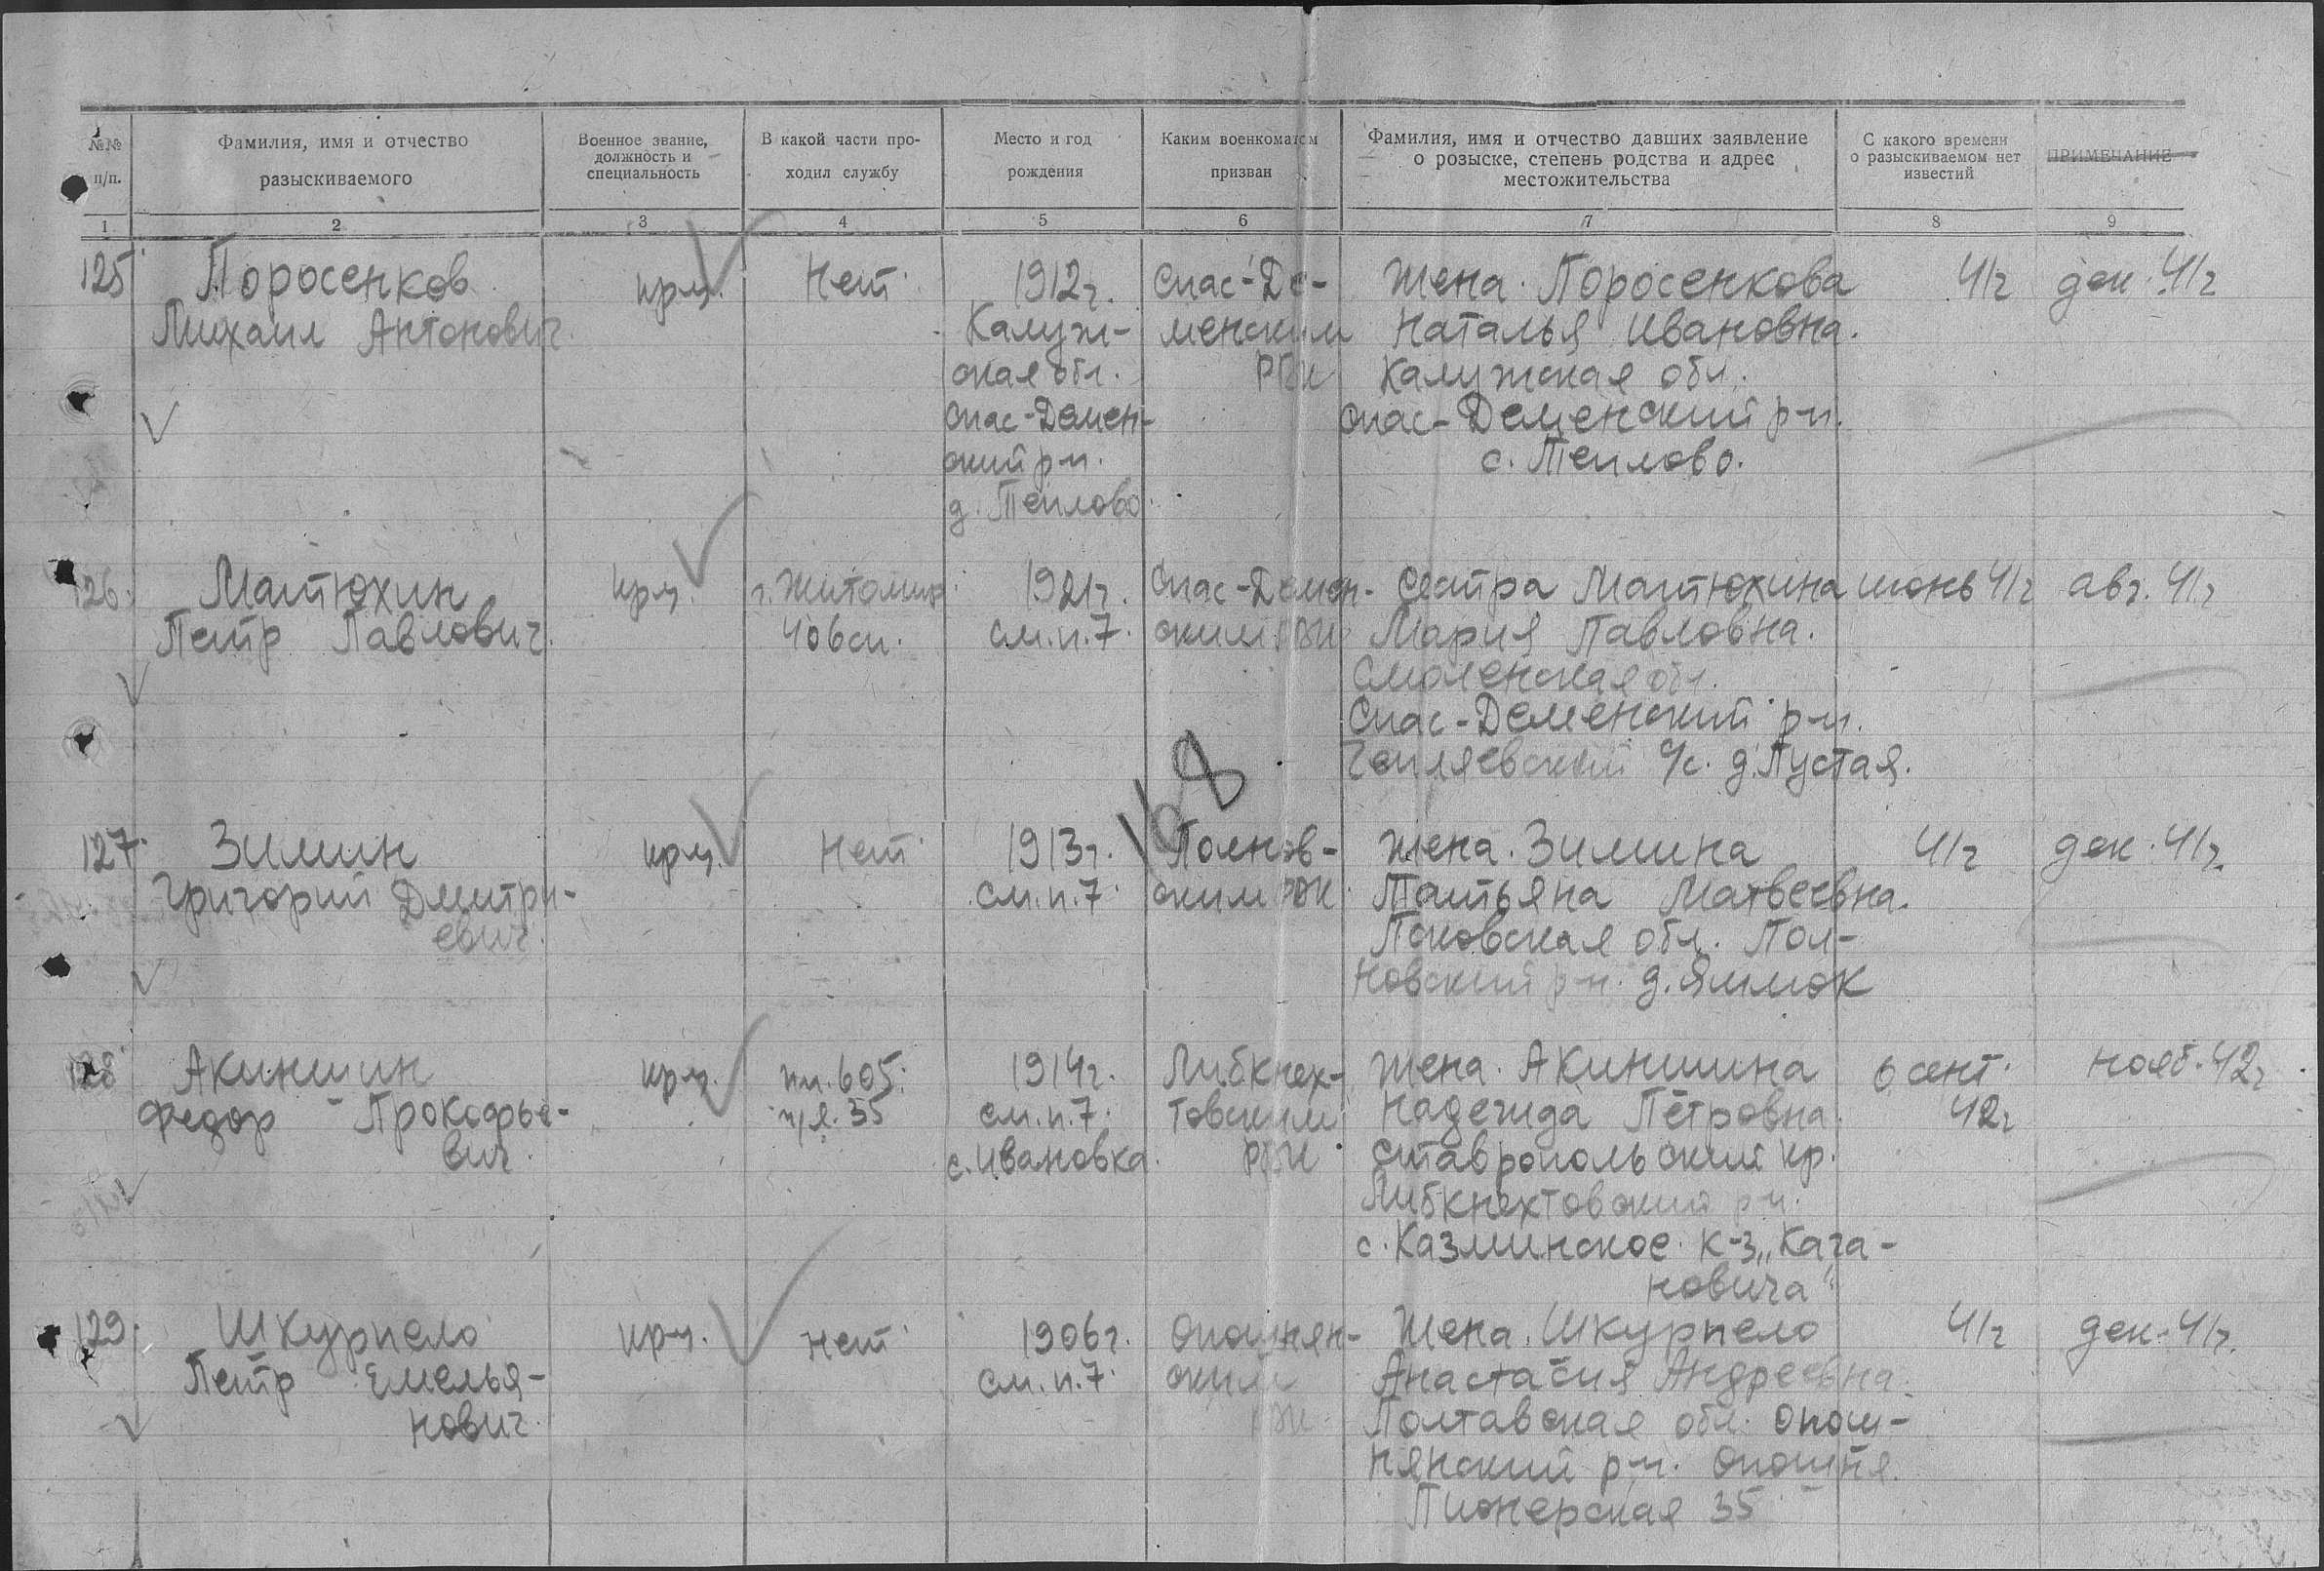 №№ п/п.
Фамилия, имя и отчество
разыскиваемого
Военное звание,
должность и
специальность
В какой части про-
ходил службу
Место и год
рождения
Каким военкоматом
призван
Фамилия, имя и отчество давших заявление
о розыске, степень родства и адрес
местожительства
С какого времени
о разыскиваемом нет
известий
ПРИМЕЧАНИЕ
1 2 3 4 5 6 7 8 9
125
Поросенков
Михаил Антонович
крц.
Нет
1912г.
Калуж-
ская обл.
Спас-Демен-
ский р-н.
д. Теплово
Спас-Де-
менским
РВК
Жена. Поросенкова
Наталья Ивановна.
Калужская обл.
Спас-Деменский р-н.
с. Теплово.
41г
дек. 41г
126.
Матюхин
Петр Павлович.
крц.
г. Житомир
406сп.
1921г.
см.п.7.
Спас-Демен-
ским РВК
Сестра Матюхина
Мария Павловна.
Смоленская обл.
Спас-Деменский р-н.
с/с. д. Пустая.
июнь 41г
авг. 41г
168
127.
Зимин
Григорий Дмитри-
евич.
крц.
Нет
1913г.
см.п.7.
Полнов-
ским РВК
Жена. Зимина
Татьяна Матвеевна.
Псковская обл. Пол-
новский р-н. д. Яммок
41г
дек. 41г.
128
Акиншин
Федор Прокофье-
вич.
крц.
пп. 605.
п/я. 35
1914г.
см.п.7.
с. Ивановка.
Либкнех-
товским
РВК
Жена. Акиншина
Надежда Петровна.
Ставропольский кр.
Либкнехтовский р-н.
с. Казминское. к-з „Кага-
новича"
6 сент.
42г
нояб. 42г.
129.
Шкурпело
Петр Емелья-
нович.
крц.
нет
1906г.
см.п.7.
Опошнян-
ским
РВК
Жена. Шкурпело
Анастасия Андреевна.
Полтавская обл. Опош-
нянский р-н. Опошня.
Пионерская 35
41г
дек. 41г.